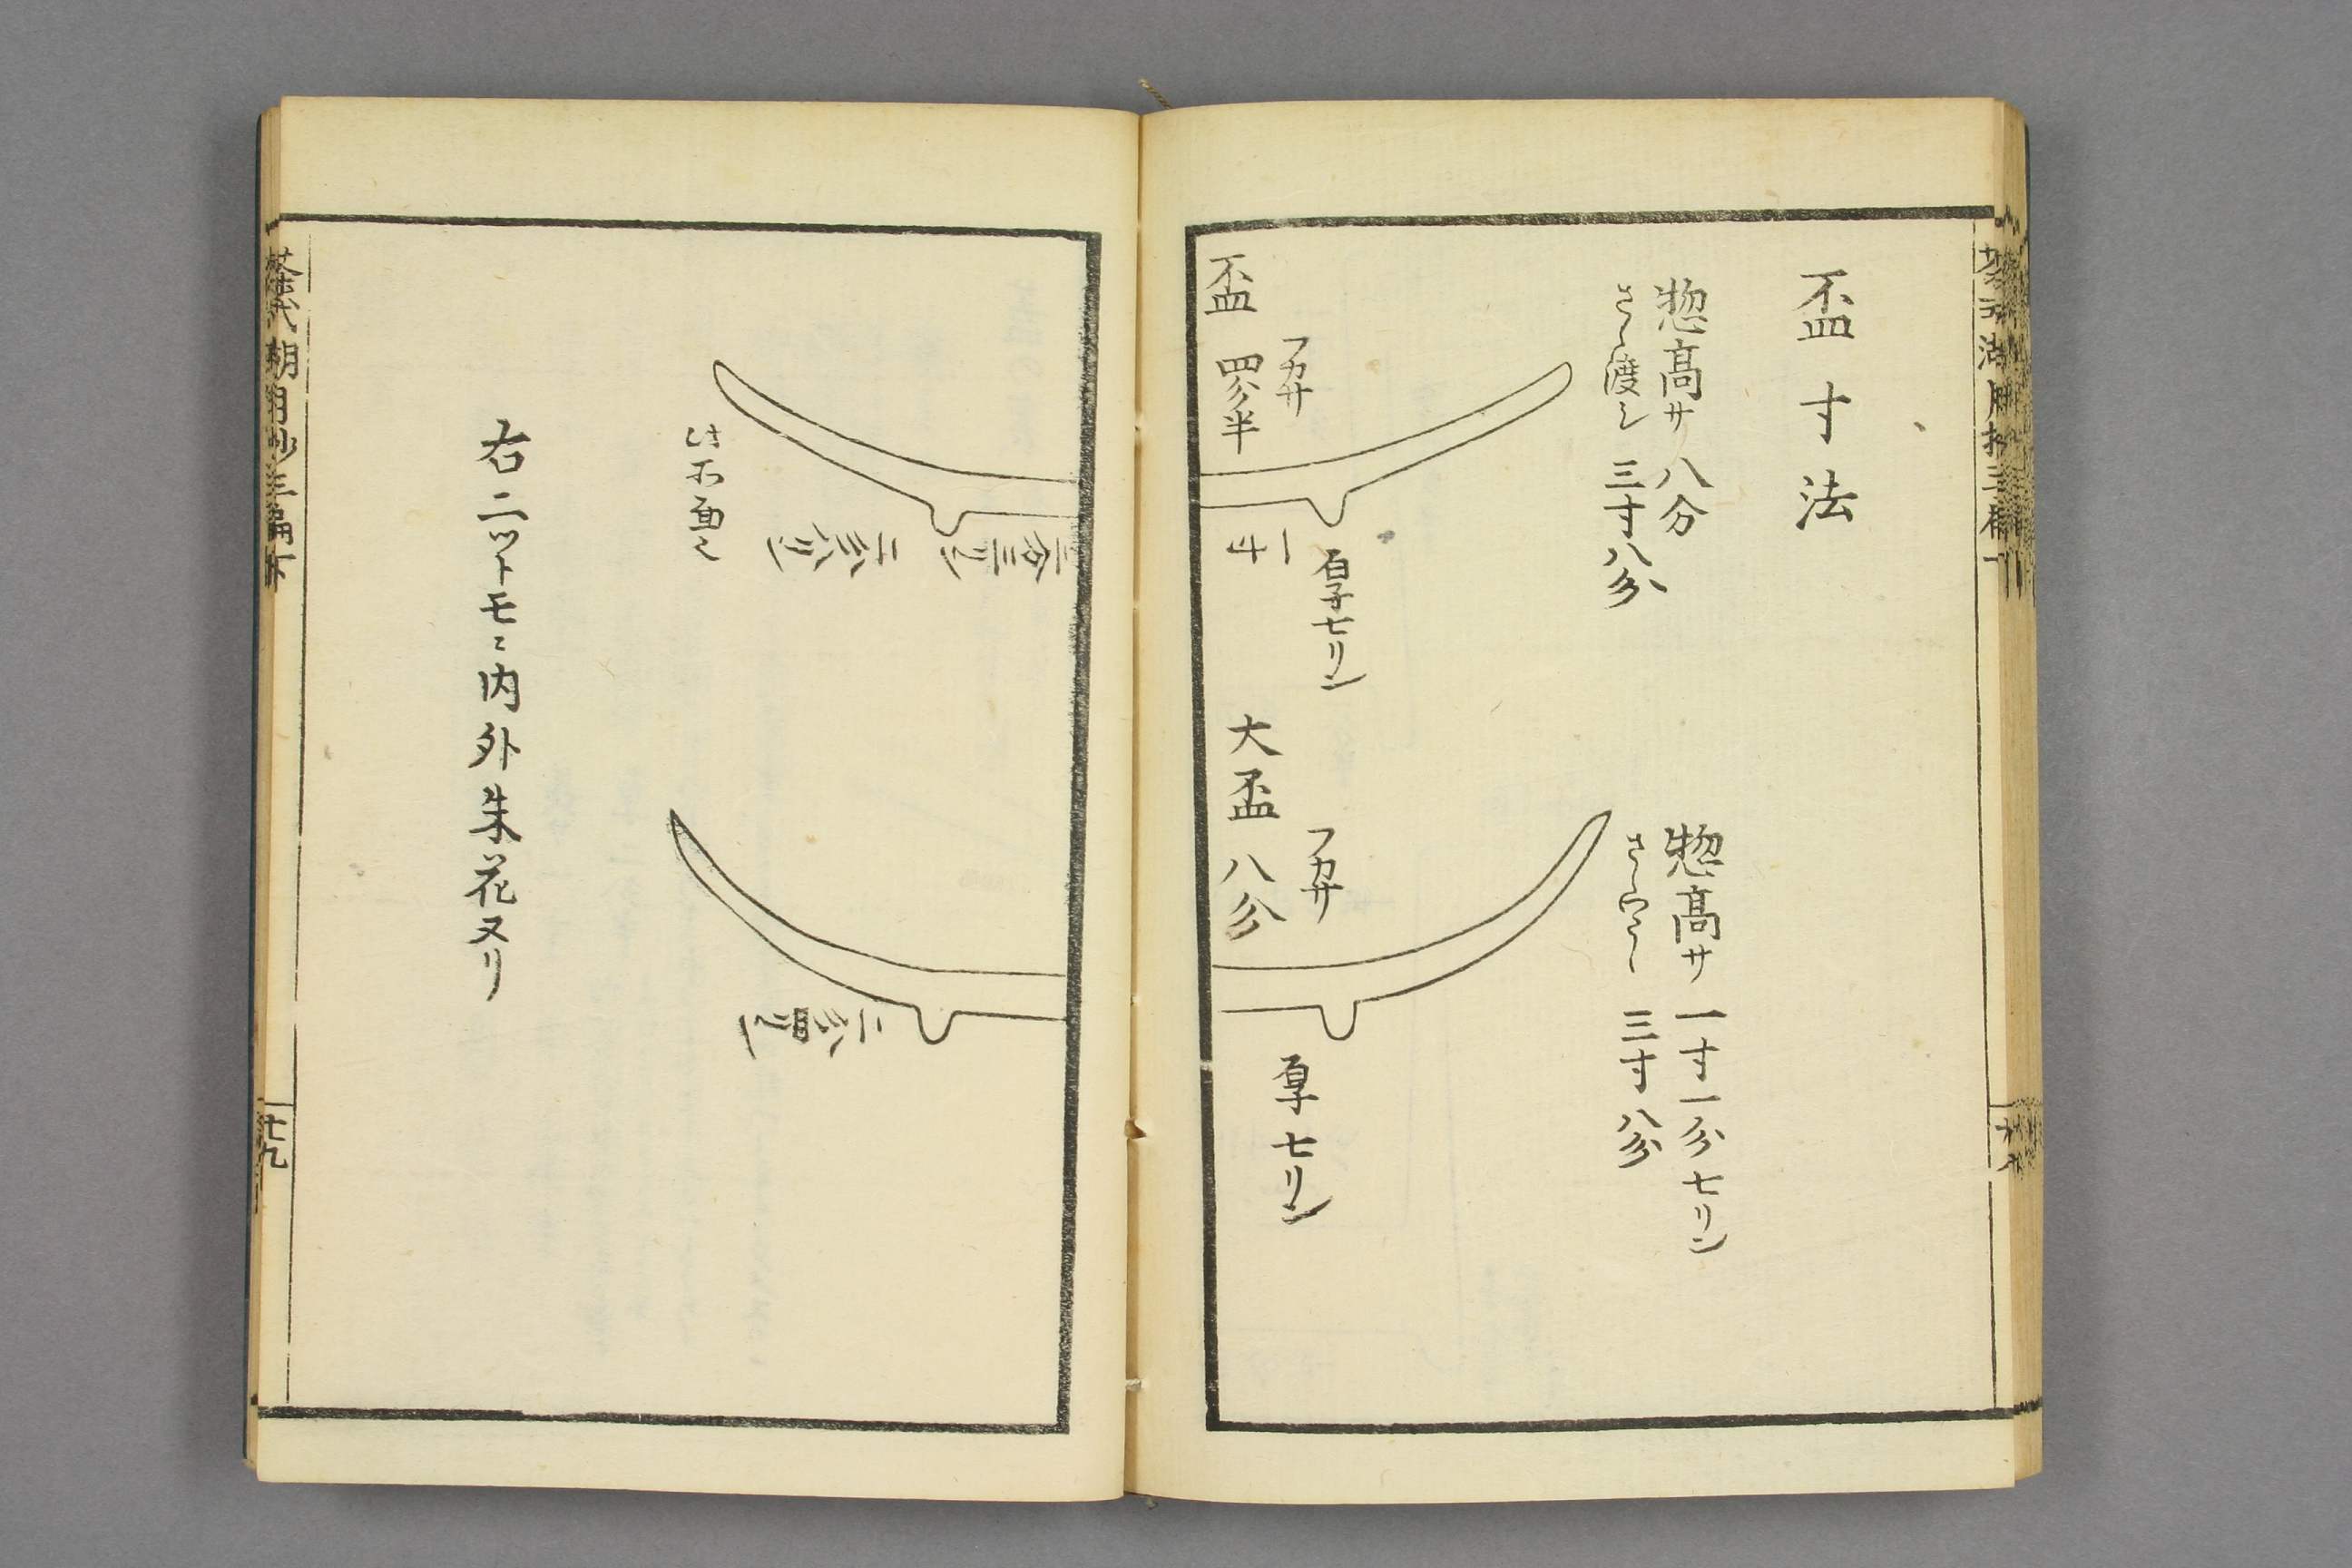 盃寸法
惣高サ八分
さし渡シ三寸八分
フカサ
四分半
盃
厚七リン
一寸
惣高サ一寸一分七リン
さしわたし三寸八分
フカサ
八分
大盃
厚七リン
三分三リン
二分八リン
二分四リン
右二ツトモニ内外朱花ヌリ
朝月抄三編下
廿九